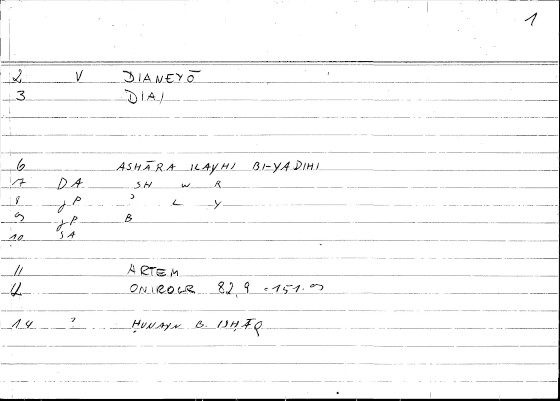 1
2 V DIANEYŌ
3 DIA
6 ASHĀRA ILAYHI BI-YADIHI
7 DA SH W R
8 gP ʾ L Y
9 gP B
10 SA
11 ARTEM
ONIROCR 82,9 151.9
14 ? ḤUNAYN B. ISḤĀQ